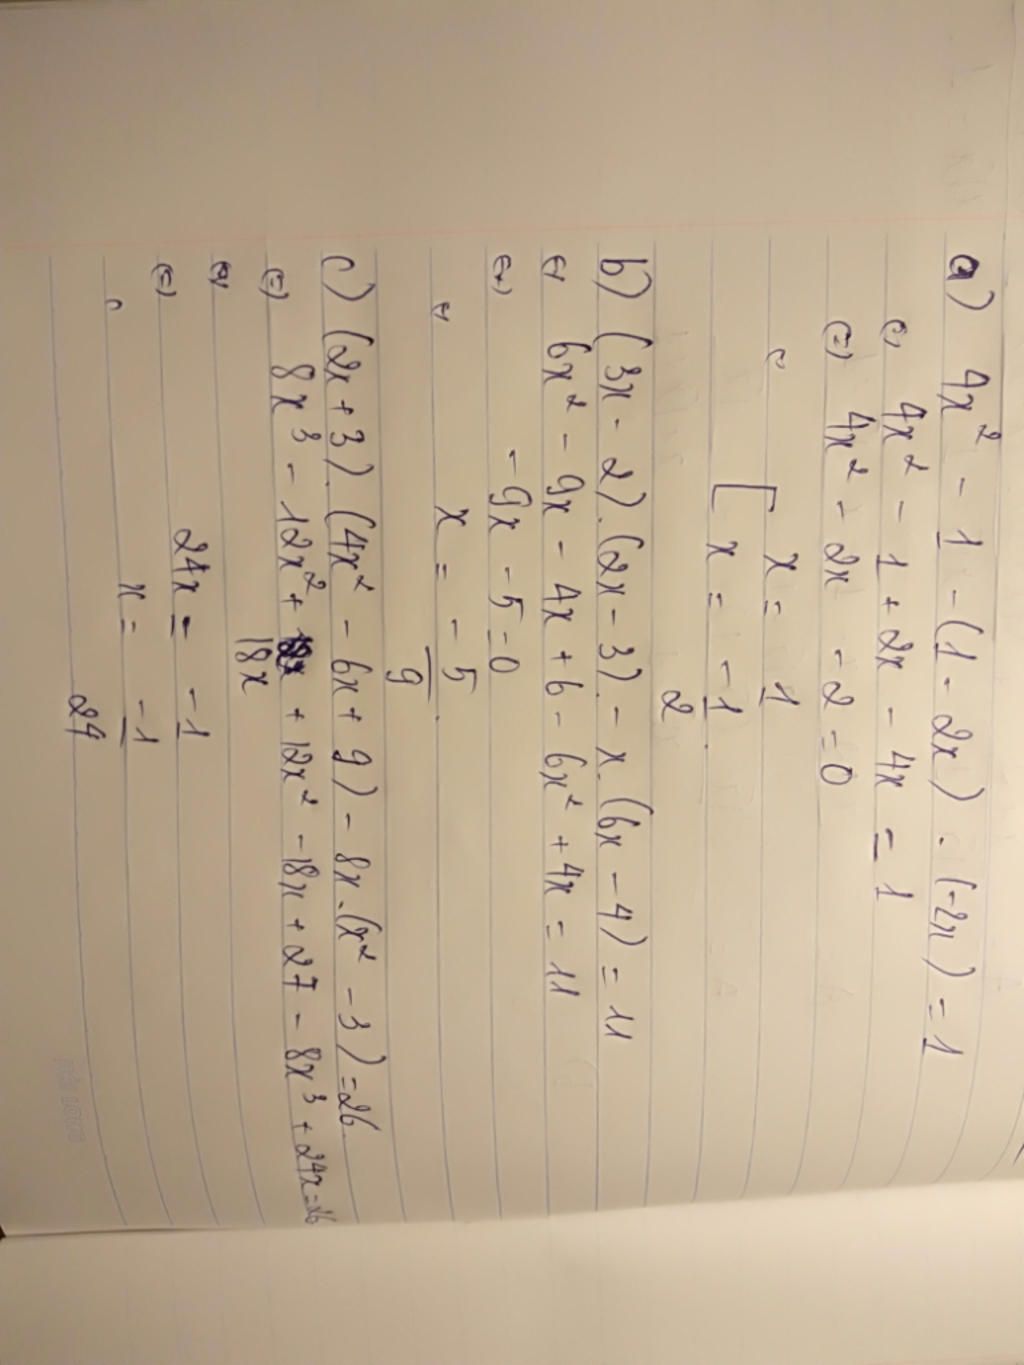 a) 4x² - 1 - (1 - 2x) . (-2x) = 1
⇔ 4x² - 1 + 2x - 4x = 1
⇔ 4x² - 2x - 2 = 0
⇔ [ x = 1
x = -1/2.
b) (3x - 2).(2x - 3). - x.(6x - 4) = 11
⇔ 6x² - 9x - 4x + 6 - 6x² + 4x = 11
⇔ -9x - 5 = 0
⇔ x = -5/9.
c) (2x + 3).(4x² - 6x + 9) - 8x.(x² - 3) = 26.
⇔ 8x³ - 12x² + 18x + 12x² - 18x + 27 - 8x³ + 24x = 26
⇔
⇔ 24x = -1
⇔ x = -1/24